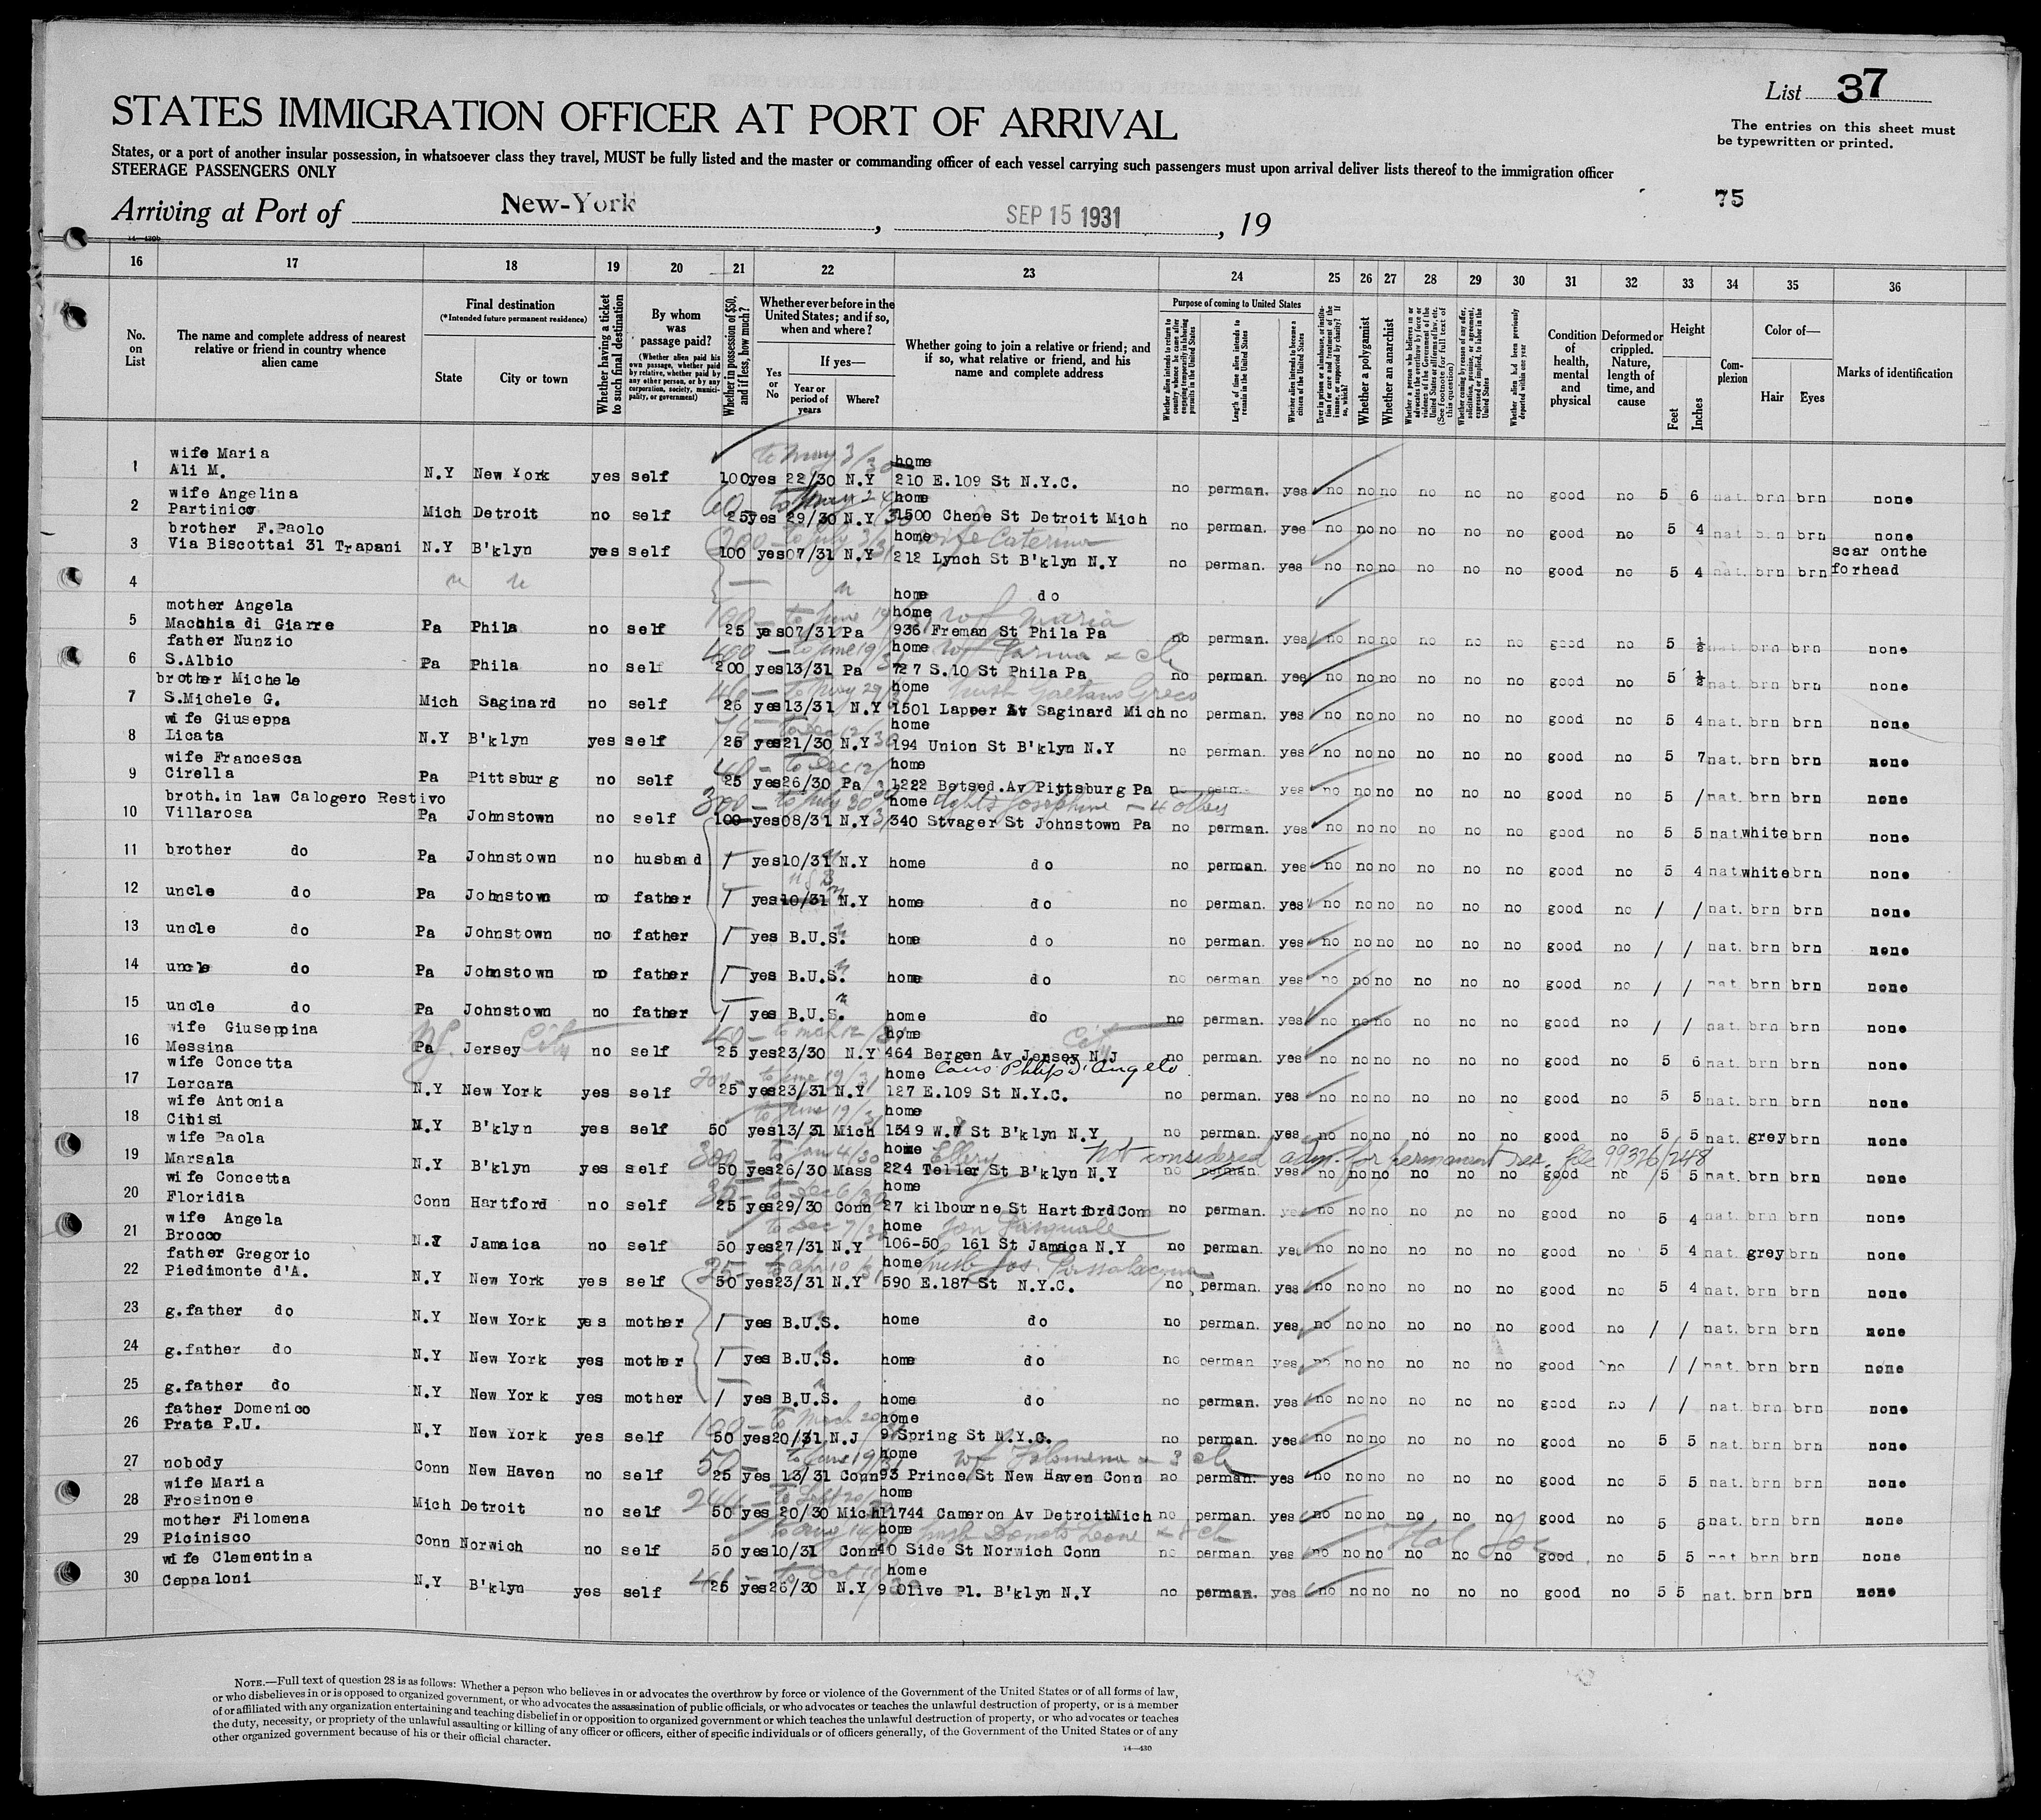 List 37
STATES IMMIGRATION OFFICER AT PORT OF ARRIVAL
The entries on this sheet must
be typewritten or printed.
States, or a port of another insular possession, in whatsoever class they travel, MUST be fully listed and the master or commanding officer of each vessel carrying such passengers must upon arrival deliver lists thereof to the immigration officer
STEERAGE PASSENGERS ONLY
75
Arriving at Port of New-York, SEP 15 1931, 19
14—430b
16 17 18 19 20 21 22 23 24 25 26 27 28 29 30 31 32 33 34 35 36
No. on List
The name and complete address of nearest relative or friend in country whence alien came
Final destination
(*Intended future permanent residence)
State
City or town
Whether having a ticket to such final destination
By whom was passage paid?
(Whether alien paid his own passage, whether paid by relative, whether paid by any other person, or by any corporation, society, municipality, or government)
Whether in possession of $50, and if less, how much?
Whether ever before in the United States; and if so, when and where?
Yes or No
If yes—
Year or period of years
Where?
Whether going to join a relative or friend; and if so, what relative or friend, and his name and complete address
Purpose of coming to United States
Whether alien intends to return to country whence he came after engaging temporarily in laboring pursuits in the United States
Length of time alien intends to remain in the United States
Whether alien intends to become a citizen of the United States
Ever in prison or almshouse, or institution for care and treatment of the insane, or supported by charity? If so, which?
Whether a polygamist
Whether an anarchist
Whether a person who believes in or advocates the overthrow by force or violence of the Government of the United States or all forms of law, etc. (See footnote for full text of this question)
Whether coming by reason of any offer, solicitation, promise, or agreement, expressed or implied, to labor in the United States
Whether alien had been previously deported within one year
Condition of health, mental and physical
Deformed or crippled. Nature, length of time, and cause
Height
Feet
Inches
Complexion
Color of—
Hair
Eyes
Marks of identification
1 wife Maria Ali M. N.Y New York yes self 100 yes 22/30 N.Y to May 3/30 home 210 E.109 St N.Y.C. no perman. yes no no no no no no good no 5 6 nat. brn brn none
2 wife Angelina Partinico Mich Detroit no self 25 yes 29/30 N.Y home 1500 Chene St Detroit Mich no perman. yes no no no no no no good no 5 4 nat. brn brn none
3 brother F.Paolo Via Biscottai 31 Trapani N.Y B'klyn yes self 100 yes 07/31 N.Y home wife Caterina 212 Lynch St B'klyn N.Y no perman. yes no no no no no no good no 5 4 nat. brn brn scar onthe forhead
4 home do
5 mother Angela Macchia di Giarre Pa Phila no self 25 yes 07/31 Pa 100 – to June 19/31 home wf Maria 936 Freman St Phila Pa no perman. yes no no no no no no good no 5 ½ nat. brn brn none
6 father Nunzio S.Albio Pa Phila no self 200 yes 13/31 Pa 400 – to June 19/31 home 727 S.10 St Phila Pa no perman. yes no no no no no no good no 5 ½ nat. brn brn none
7 brother Michele S.Michele G. Mich Saginard no self 25 yes 13/31 N.Y 40 – to May 29/31 home husb Gaetano Greco 1501 Lapper Av Saginard Mich no perman. yes no no no no no no good no 5 4 nat. brn brn none
8 wife Giuseppa Licata N.Y B'klyn yes self 25 yes 21/30 N.Y 75 – to Dec 12/30 home 194 Union St B'klyn N.Y no perman. yes no no no no no no good no 5 7 nat. brn brn none
9 wife Francesca Cirella Pa Pittsburg no self 25 yes 26/30 Pa 40 – to Dec 12/30 home 1222 Betsed.Av Pittsburg Pa n perm. yes no no no no no no good no 5 / nat. brn brn none
10 broth.in law Calogero Restivo Villarosa Pa Johnstown no self 100 yes 08/31 N.Y 300 – to July 30/31 home Josephine – 4 others 340 Stvager St Johnstown Pa no perman. yes no no no no no no good no 5 5 nat. white brn none
11 brother do Pa Johnstown no husband / yes 10/31 N.Y home do no perman. yes no no no no no no good no 5 4 nat. white brn none
12 uncle do Pa Johnstown no father / yes 10/31 N.Y USB home do no perman. yes no no no no no no good no / / nat. brn brn none
13 uncle do Pa Johnstown no father / yes B.U.S. home do no perman. yes no no no no no no good no / / nat. brn brn none
14 uncle do Pa Johnstown no father / yes B.U.S. home do no perman yes no no no no no no good no / / nat. brn brn none
15 uncle do Pa Johnstown no father / yes B.U.S. home do no perman. yes no no no no no no good no / / nat. brn brn none
16 wife Giuseppina Messina Pa NJ. Jersey City no self 25 yes 23/30 N.Y 40 – to mch 12/30 home 464 Bergen Av Jersey City N.J no perman. yes no no no no no no good no 5 6 nat. brn brn none
17 wife Concetta Lercara N.Y New York yes self 25 yes 23/31 N.Y 200 – to June 19/31 home Cous. Philip D'Angelo 127 E.109 St N.Y.C. no perman. yes no no no no no no good no 5 5 nat. brn brn none
18 wife Antonia Cibisi N.Y B'klyn yes self 50 yes 13/31 Mich to June 19/31 home 1549 W.7 St B'klyn N.Y no perman. yes no no no no no no good no 5 5 nat. grey brn none
19 wife Paola Marsala N.Y B'klyn yes self 50 yes 26/30 Mass 300 – to Jan 4/30 home Ellery 224 Teller St B'klyn N.Y Not considered adm. for permanent res. file 99326/248 no perman. yes no no no no no no good no 5 5 nat. brn brn none
20 wife Concetta Floridia Conn Hartford no self 25 yes 29/30 Conn 35 – to Dec 6/30 home 27 kilbourne St Hartford Conn no perman. yes no no no no no no good no 5 4 nat. brn brn none
21 wife Angela Brocco N.Y Jamaica no self 50 yes 27/31 N.Y to Dec 7/30 home son Pasquale 106-50 161 St Jamaica N.Y no perman. yes no no no no no no good no 5 4 nat. grey brn none
22 father Gregorio Piedimonte d'A. N.Y New York yes self 50 yes 23/31 N.Y 25 – to Apr 10/31 home husb Jos. Passalacqua 590 E.187 St N.Y.C. no perman. yes no no no no no no good no 5 4 nat. brn brn none
23 g.father do N.Y New York yes mother / yes B.U.S. home do no perman. yes no no no no no no good no / / nat. brn brn none
24 g.father do N.Y New York yes mother / yes B.U.S. home do no perman yes no no no no no no good no / / nat. brn brn none
25 g.father do N.Y New York yes mother / yes B.U.S. home do no perman. yes no no no no no no good no / / nat. brn brn none
26 father Domenico Prata P.U. N.Y New York yes self 50 yes 20/31 N.J 100 – to March 20/31 home 9 Spring St N.Y.C. no perman. yes no no no no no no good no 5 5 nat. brn brn none
27 nobody Conn New Haven no self 25 yes 13/31 Conn 50 – to June 19/31 home wf Filomena & 3 ch 93 Prince St New Haven Conn no perman. yes no no no no no no good no 5 5 nat. brn brn none
28 wife Maria Frosinone Mich Detroit no self 50 yes 20/30 Mich home 11744 Cameron Av Detroit Mich no perman. yes no no no no no no good no 5 5 nat. brn brn none
29 mother Filomena Picinisco Conn Norwich no self 50 yes 10/31 Conn to Aug 14/31 home husb Donato Leone & 8 ch 40 Side St Norwich Conn no perman. yes no no no no no no good no 5 5 nat. brn brn none
30 wife Clementina Ceppaloni N.Y B'klyn yes self 25 yes 26/30 N.Y home 9 Olive Pl. B'klyn N.Y no perman. yes no no no no no no good no 5 5 nat. brn brn none
NOTE.—Full text of question 28 is as follows: Whether a person who believes in or advocates the overthrow by force or violence of the Government of the United States or of all forms of law,
or who disbelieves in or is opposed to organized government, or who advocates the assassination of public officials, or who advocates or teaches the unlawful destruction of property, or is a member
of or affiliated with any organization entertaining and teaching disbelief in or opposition to organized government or which teaches the unlawful destruction of property, or who advocates or teaches
the duty, necessity, or propriety of the unlawful assaulting or killing of any officer or officers, either of specific individuals or of officers generally, of the Government of the United States or of any
other organized government because of his or their official character.
14—430